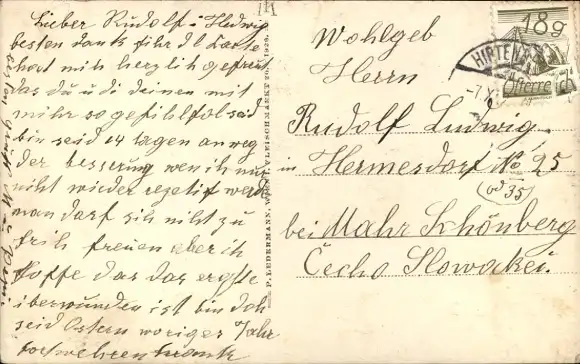 Lieber Rudolf i Hedwig
besten dank fihr dl Karte
hat mich herzlich gefreut
das du u di deinen mit
mihr so gefihlfol sad
bin seid 14 tagen an weg
der besserung wen ich nur
niht wieder rezetif werd
man darf sih niht zu
frih freuen aber ih
hoffe das das ergste
iberwunden ist bin doh
seid Ostern woriger Jahr
fortwehren krank
P. LEDERMANN, WIEN I, FLEISCHMARKT 20. 1928.
18g
HIRTEN
-7.X
Österre
Wohlgeb
Herrn
Rudolf Ludwig
in Hermesdorf No 25
(od 35)
bei Mahr Schönberg
Čecho Slowakei.